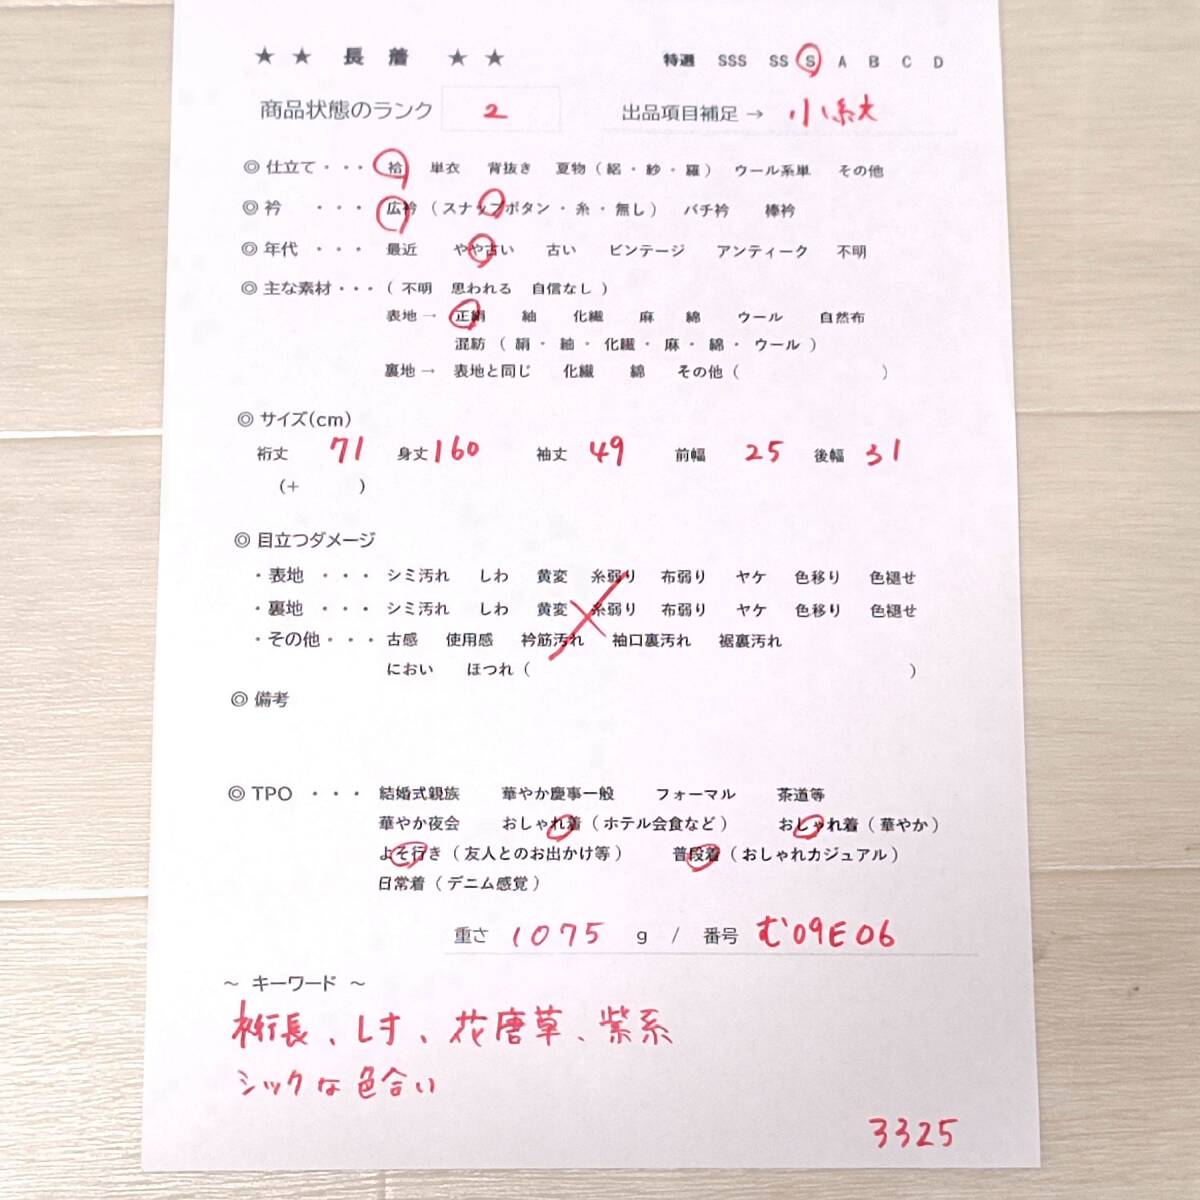 ★ ★ 長 着 ★ ★ 特選 SSS SS S A B C D
商品状態のランク 2 出品項目補足 → 小紋
◎ 仕立て・・・ 袷 単衣 背抜き 夏物（絽・紗・羅） ウール系単 その他
◎ 衿 ・・・ 広衿（スナップボタン・糸・無し） バチ衿 棒衿
◎ 年代 ・・・ 最近 やや古い 古い ビンテージ アンティーク 不明
◎ 主な素材・・・（不明 思われる 自信なし）
表地 → 正絹 紬 化繊 麻 綿 ウール 自然布
混紡（絹・紬・化繊・麻・綿・ウール）
裏地 → 表地と同じ 化繊 綿 その他（ ）
◎ サイズ(cm)
裄丈 71 身丈 160 袖丈 49 前幅 25 後幅 31
(＋ )
◎ 目立つダメージ
・表地 ・・・ シミ汚れ しわ 黄変 糸弱り 布弱り ヤケ 色移り 色褪せ
・裏地 ・・・ シミ汚れ しわ 黄変 糸弱り 布弱り ヤケ 色移り 色褪せ
・その他・・・ 古感 使用感 衿筋汚れ 袖口裏汚れ 裾裏汚れ
におい ほつれ（ ）
◎ 備考
◎ TPO ・・・ 結婚式親族 華やか慶事一般 フォーマル 茶道等
華やか夜会 おしゃれ着（ホテル会食など） おしゃれ着（華やか）
よそ行き（友人とのお出かけ等） 普段着（おしゃれカジュアル）
日常着（デニム感覚）
重さ 1075 g / 番号 む09E06
～ キーワード ～
裄長、しす、花唐草、紫系
シックな色合い
3325